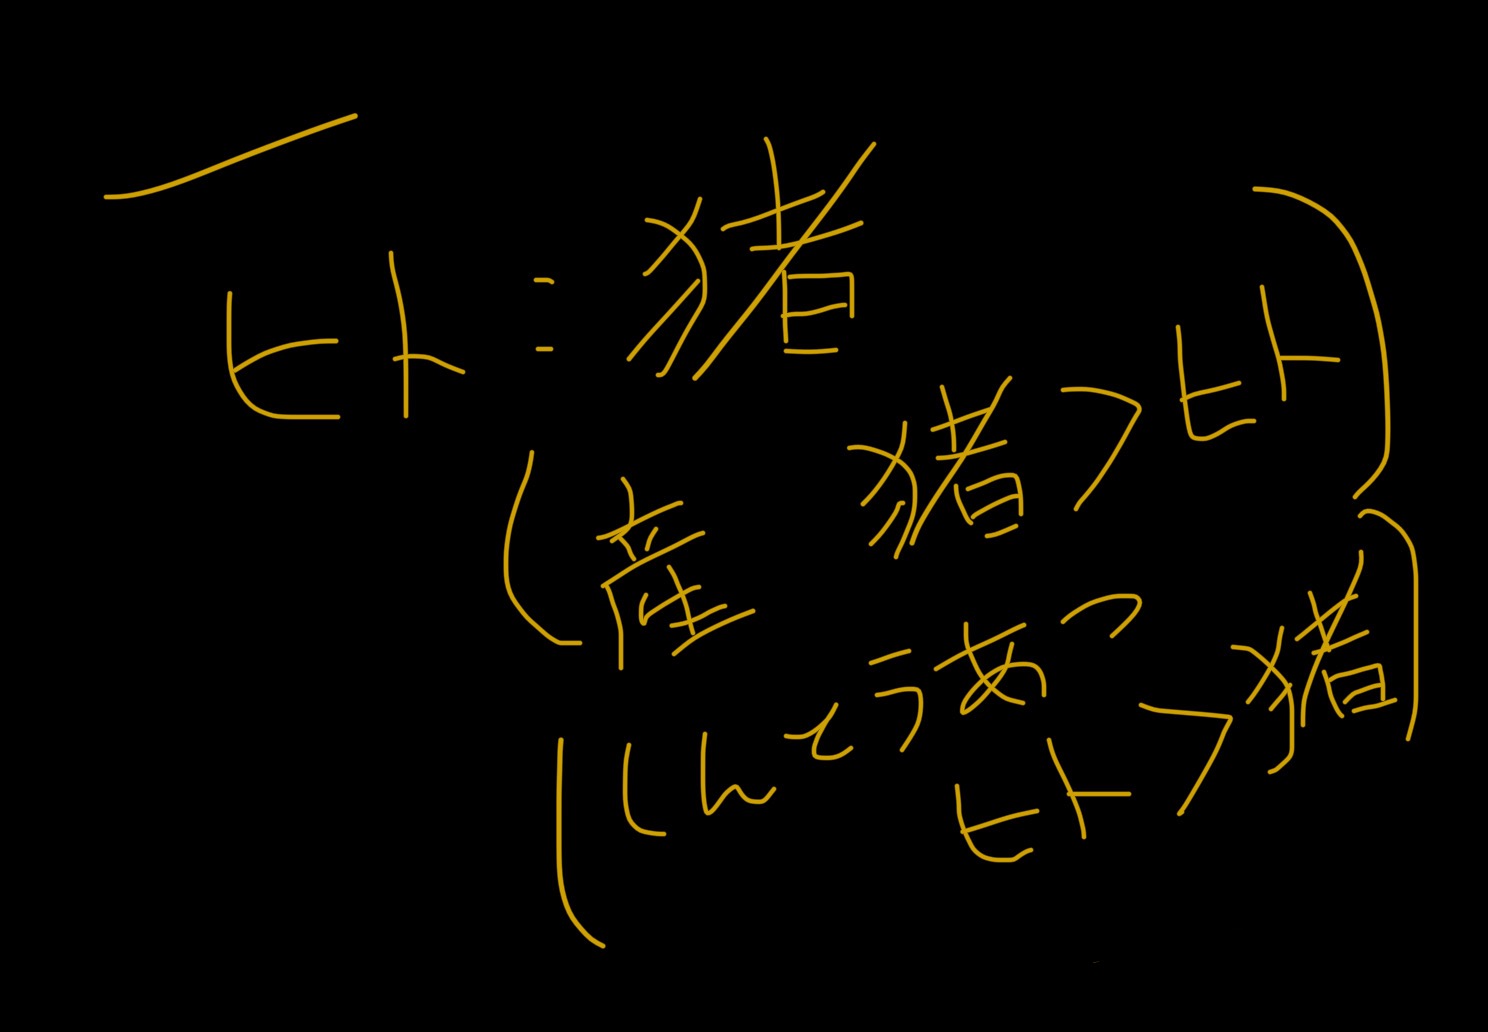 ヒト=猪
(産 猪>ヒト)
(しんとうあつ ヒト>猪)